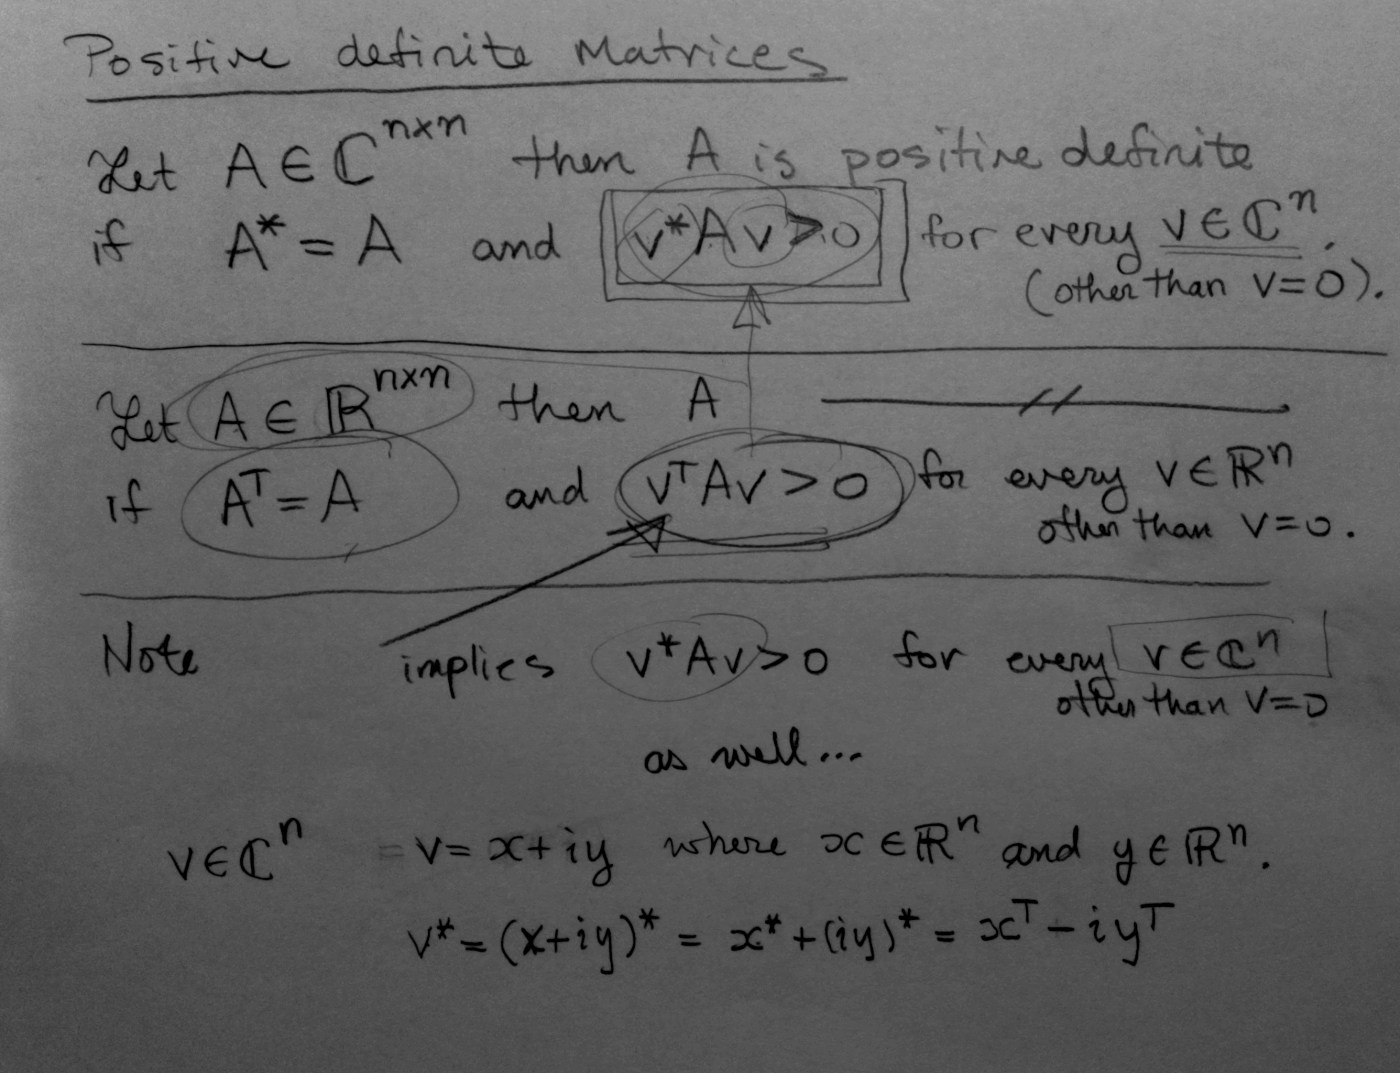 Positive definite Matrices
Let A ∈ ℂⁿˣⁿ then A is positive definite
if A* = A and v*Av > 0 for every v ∈ ℂⁿ.
(other than v=0).
Let A ∈ ℝⁿˣⁿ then A —//—
if Aᵀ = A and vᵀAv > 0 for every v ∈ ℝⁿ
other than v=0.
Note implies v*Av > 0 for every v ∈ ℂⁿ
other than v=0
as well...
v ∈ ℂⁿ = v = x+iy where x ∈ ℝⁿ and y ∈ ℝⁿ.
v* = (x+iy)* = x* + (iy)* = xᵀ - iyᵀ